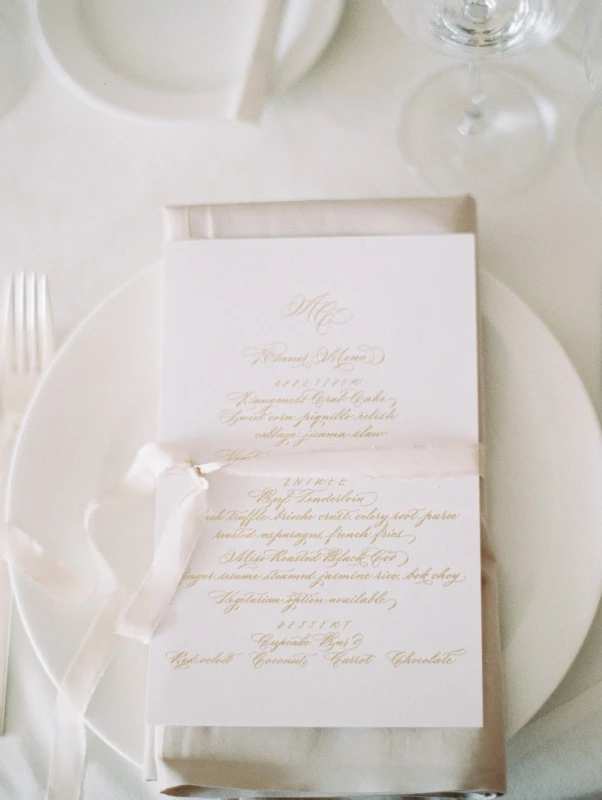 AC
Dinner Menu
APPETIZER
Dungeness Crab Cake
Sweet corn piquillo relish
cabbage jicama slaw
ENTREE
Beef Tenderloin
truffle brioche crust, celery root puree
roasted asparagus, french fries
Miso Roasted Black Cod
sesame steamed jasmine rice, bok choy
Vegetarian option available
DESSERT
Cupcake Bar
Red velvet Coconut Carrot Chocolate